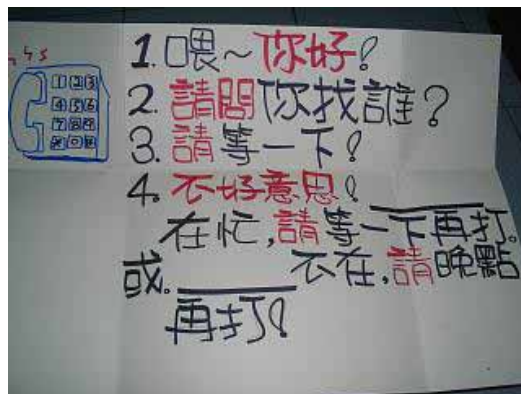 1. 喂~你好!
2. 請問你找誰?
3. 請等一下!
4. 不好意思!
在忙,請等一下再打。
或。 不在,請晚點
再打!
1 2 3
4 5 6
7 8 9